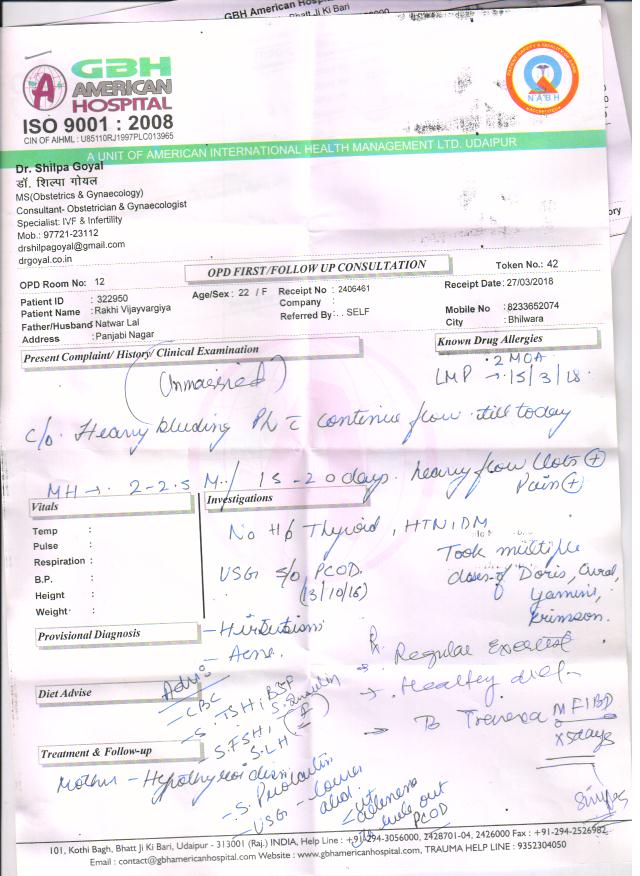 GBH American Hosp
Bhatt Ji Ki Bari
GBH
AMERICAN
HOSPITAL
ISO 9001 : 2008
CIN OF AIHML : U85110RJ1997PLC013965
NABH
A UNIT OF AMERICAN INTERNATIONAL HEALTH MANAGEMENT LTD. UDAIPUR
Dr. Shilpa Goyal
डॉ. शिल्पा गोयल
MS(Obstetrics & Gynaecology)
Consultant- Obstetrician & Gynaecologist
Specialist: IVF & Infertility
Mob.: 97721-23112
drshilpagoyal@gmail.com
drgoyal.co.in
ory
OPD FIRST/FOLLOW UP CONSULTATION
Token No.: 42
OPD Room No: 12
Patient ID : 322950
Age/Sex : 22 / F
Receipt No : 2406461
Receipt Date : 27/03/2018
Patient Name : Rakhi Vijayvargiya
Company :
Mobile No : 8233652074
Father/Husband Natwar Lal
Referred By : . . SELF
City : Bhilwara
Address : Panjabi Nagar
Present Complaint/ History/ Clinical Examination
Known Drug Allergies
(Unmarried)
2 MOA
LMP → 15/3/18
c/o. Heavy bleeding continue flow till today
MH → 2-2.5 M / 15-20 days. heavy flow Clots (+)
Pain (+)
Vitals
Investigations
Temp :
Pulse :
Respiration :
B.P. :
Heignt :
Weight :
No H/o Thyroid, HTN, DM
USG s/o PCOD
(13/10/16)
Took multiple
doses of Doris,
Yamini,
Krimson.
Provisional Diagnosis
- Hirsutism
- Acne.
Rx Regular Exercise
→ Healthy diet
→ Tb Trenexa MF 1 BD
x 5 days
Diet Advise
Adv:
- CBC
- S. TSH, BSF
S. Insulin
(F)
- S. FSH,
S. LH
- S. Prolactin
- USG - Lower
abd.
to rule out
PCOD
Treatment & Follow-up
Mother - Hypothyroidism
101, Kothi Bagh, Bhatt Ji Ki Bari, Udaipur - 313001 (Raj.) INDIA, Help Line : +91-294-3056000, 2428701-04, 2426000 Fax : +91-294-2526982
Email : contact@gbhamericanhospital.com Website : www.gbhamericanhospital.com, TRAUMA HELP LINE : 9352304050